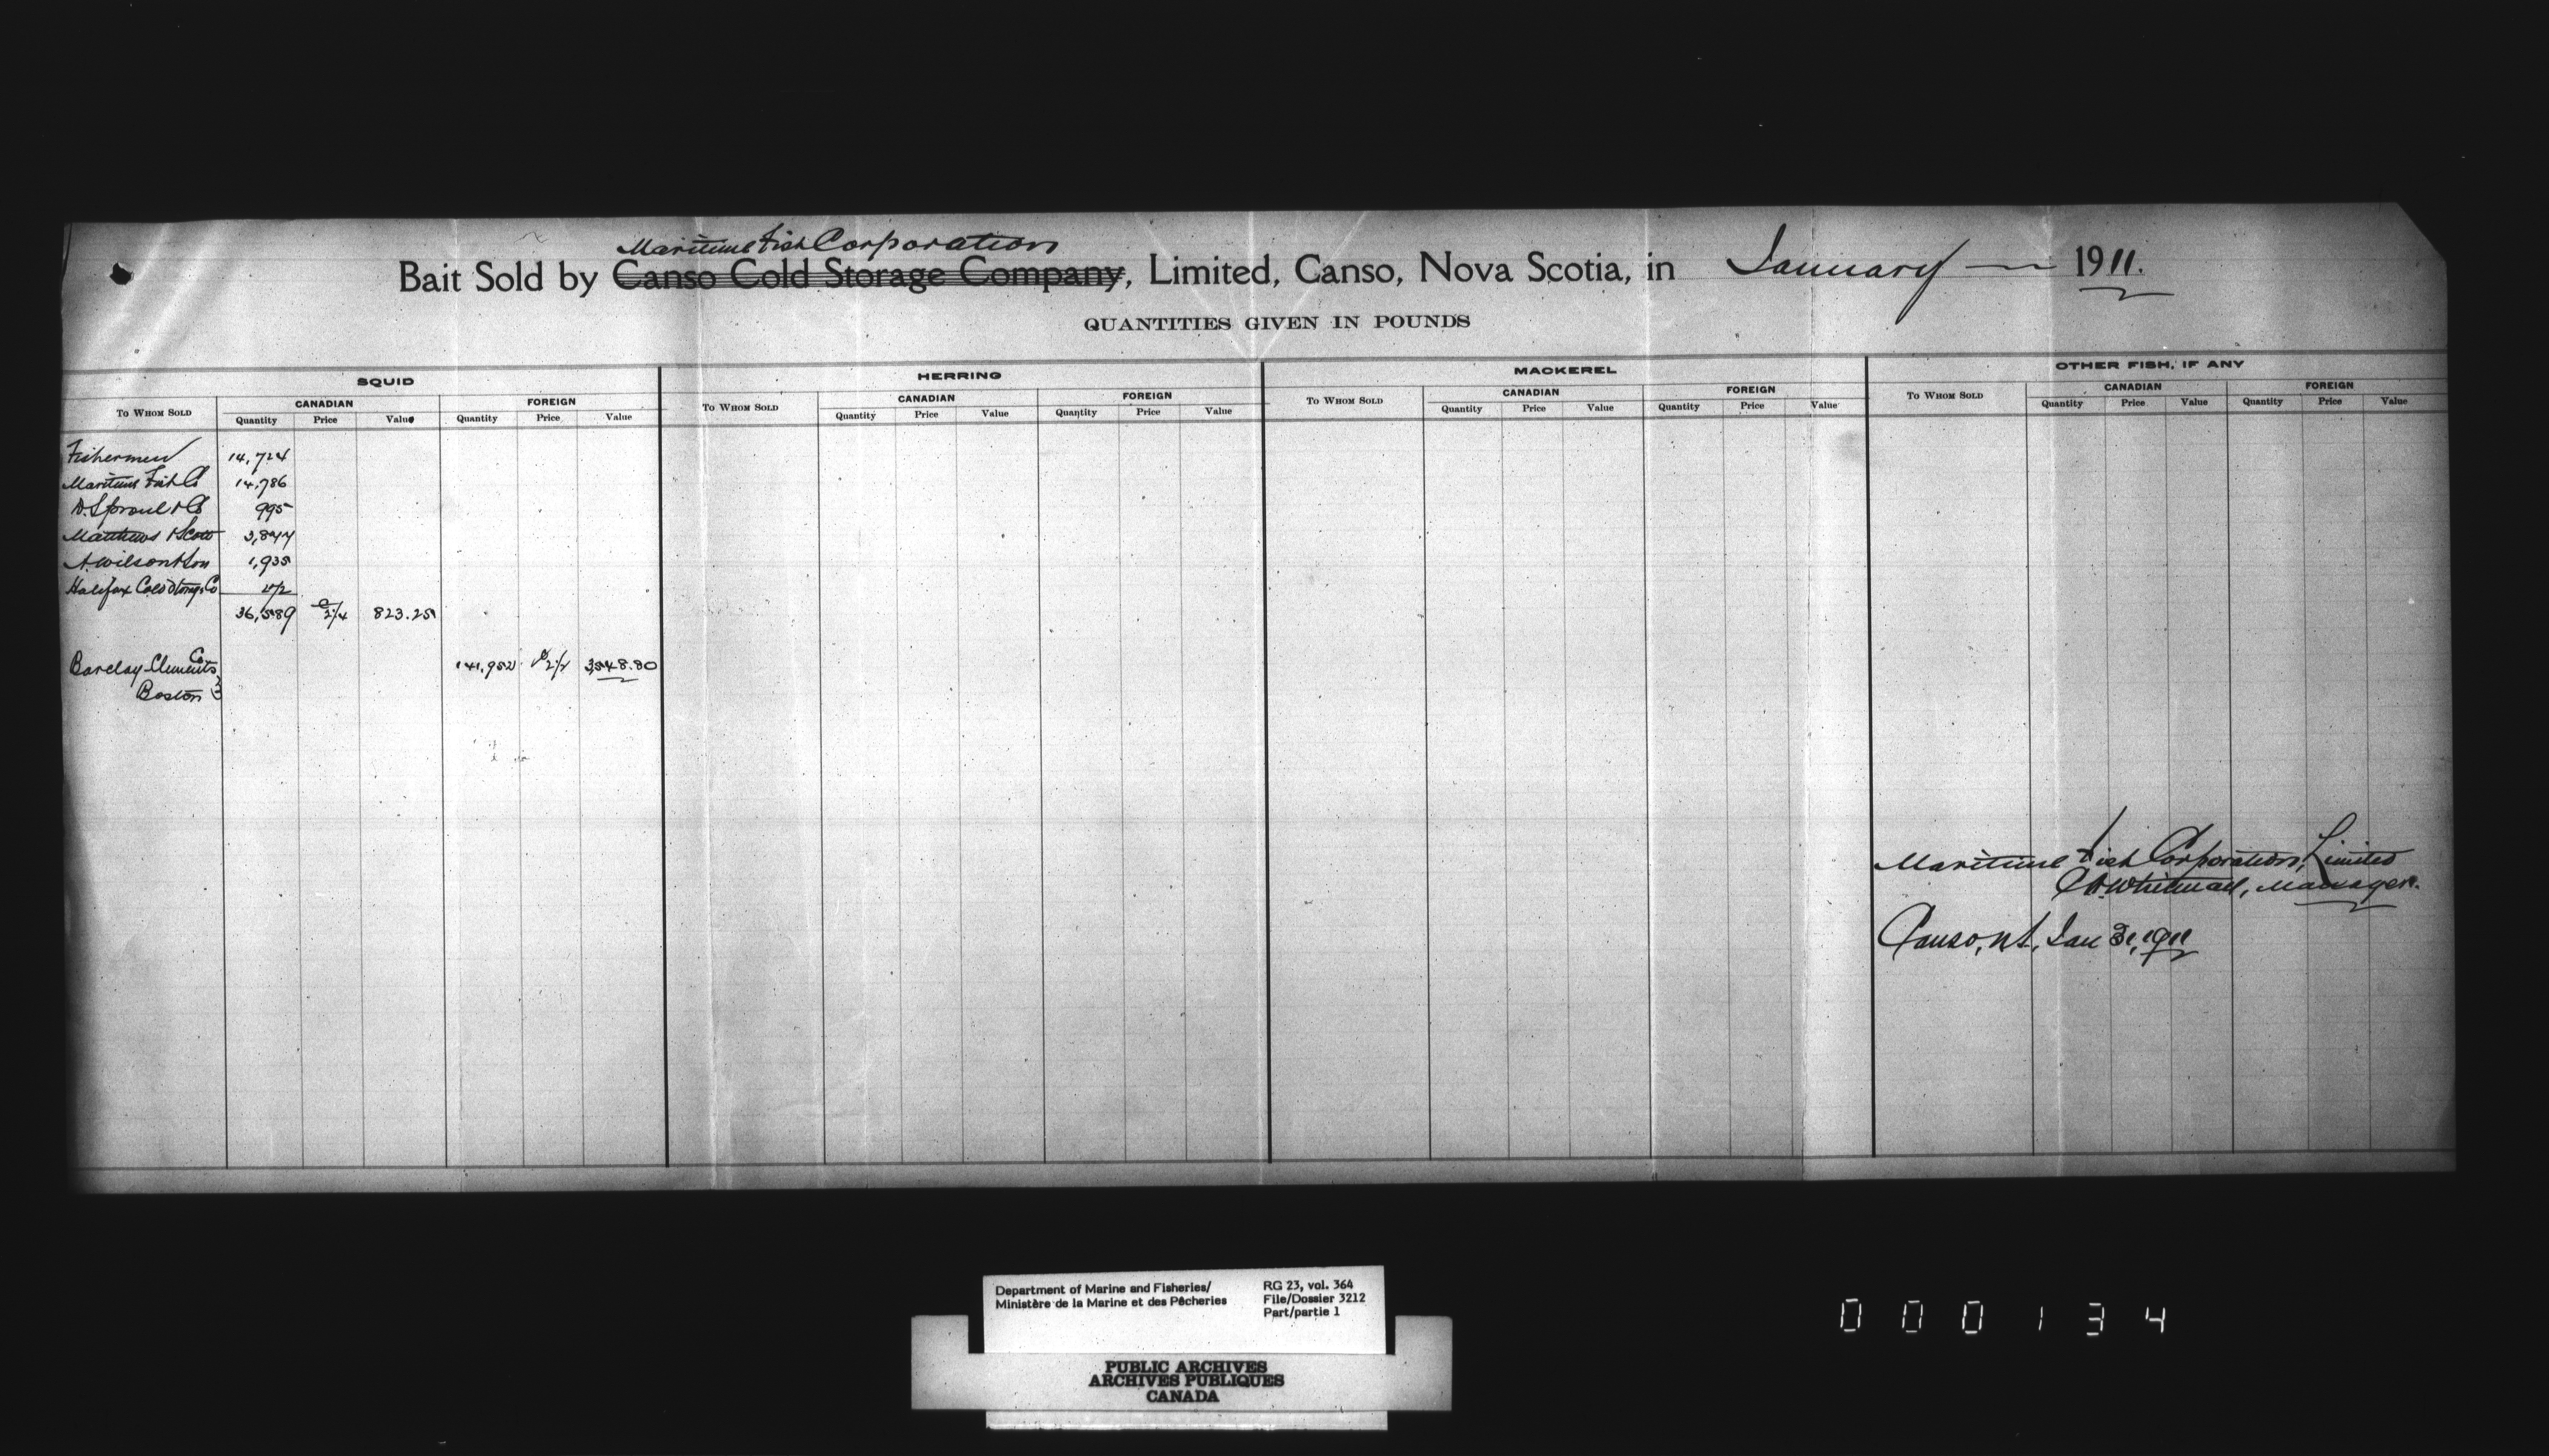 Maritime Fish Corporation
Bait Sold by Canso Cold Storage Company, Limited, Canso, Nova Scotia, in January 1911.
QUANTITIES GIVEN IN POUNDS
SQUID HERRING MACKEREL OTHER FISH, IF ANY
TO WHOM SOLD CANADIAN FOREIGN TO WHOM SOLD CANADIAN FOREIGN TO WHOM SOLD CANADIAN FOREIGN TO WHOM SOLD CANADIAN FOREIGN
Quantity Price Value Quantity Price Value Quantity Price Value Quantity Price Value Quantity Price Value Quantity Price Value Quantity Price Value Quantity Price Value
Fishermen 14,724
Maritime Fish Co 14,786
D. Sproul & Co 995
Matthews & Scott
A. Wilson & Son 1,935
Halifax Cold Storage Co
36,589 2 1/4 823.25
Barclay Clements Co 141,952 2 1/2 3,548.80
Boston
Maritime Fish Corporation, Limited
Whitman, Manager.
Canso, N.S., Jan 31, 1911
Department of Marine and Fisheries/
Ministère de la Marine et des Pêcheries
RG 23, vol. 364
File/Dossier 3212
Part/partie 1
PUBLIC ARCHIVES
ARCHIVES PUBLIQUES
CANADA
000134